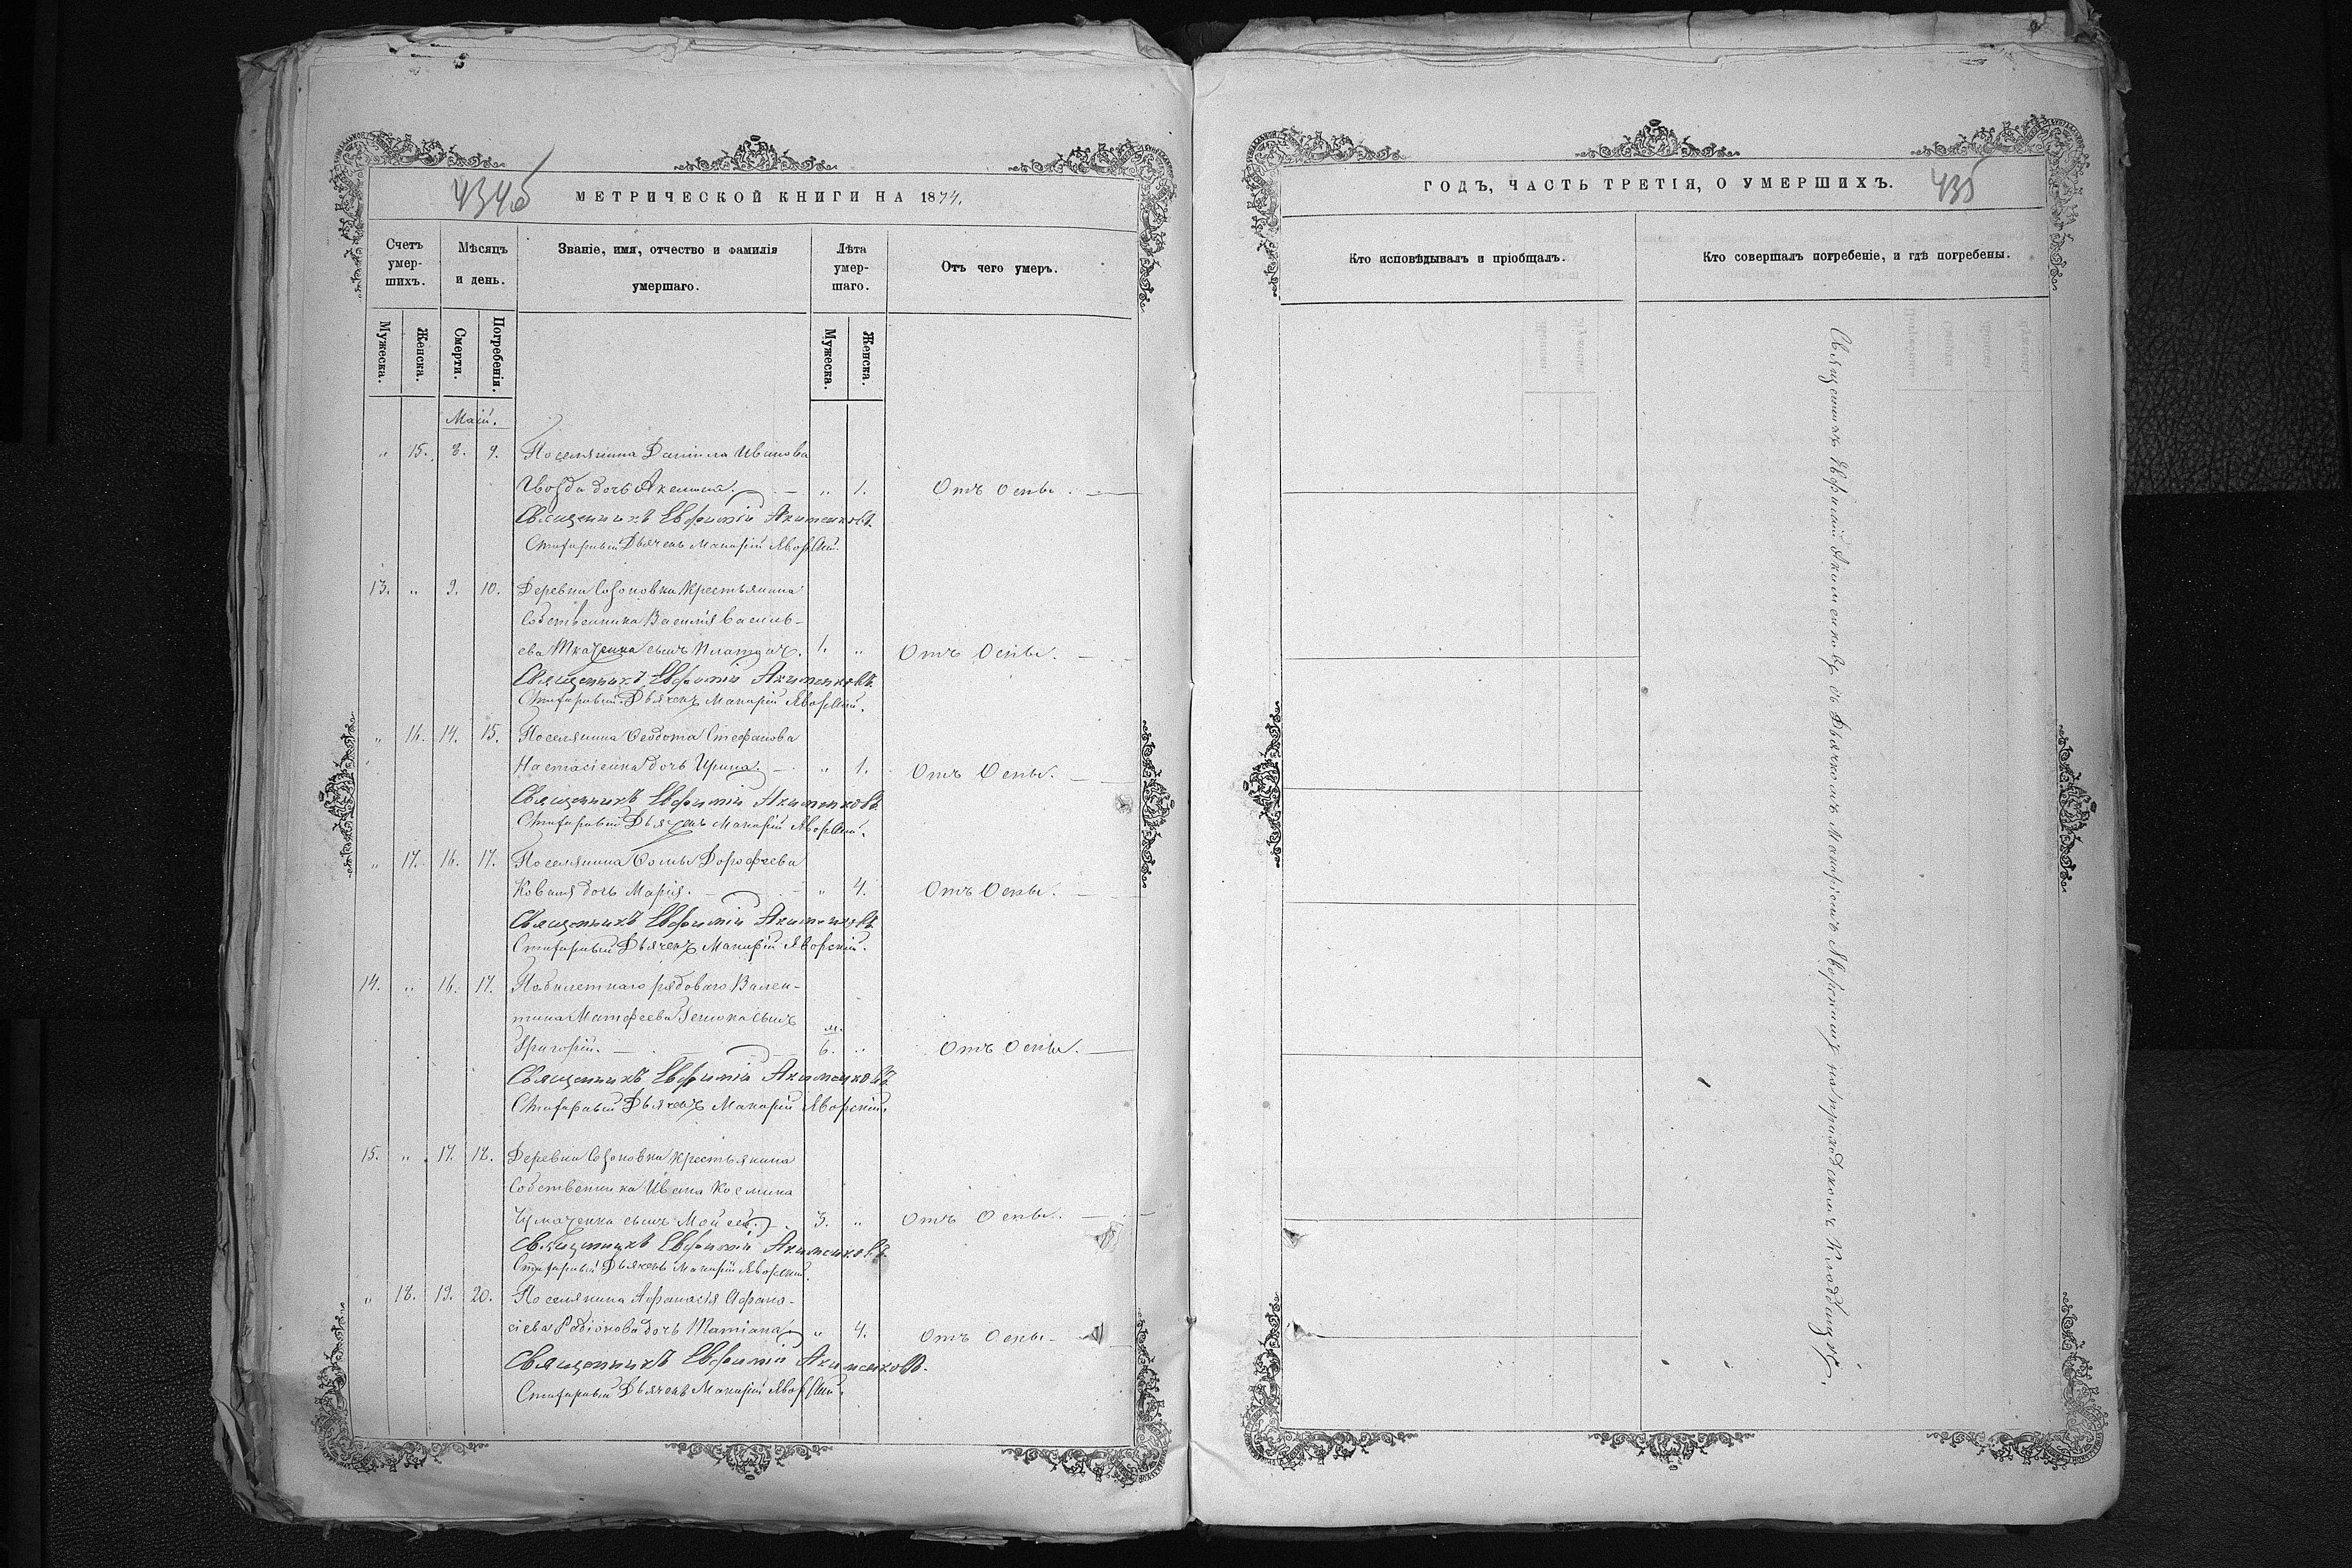 434б
МЕТРИЧЕСКОЙ КНИГИ НА 1874.
Счетъ умер-шихъ.
Мѣсяцъ и день.
Званіе, имя, отчество и фамилія умершаго.
Лѣта умер-шаго.
Отъ чего умеръ.
Мужеска.
Женска.
Смерти.
Погребенія.
Мужеска.
Женска.
Маій.
" 15. 8. 9. Поселянина Данила Иванова
Гвозда дочь Акелина. — " 1. Отъ Оспы. —
Священникъ Евфимій Акименковъ.
Стихарный Дьячекъ Макарій Яворскій.
13. " 9. 10. Деревни Созоновки Крестьянина
Собственника Василія Василь-
ева Ткаченка сынъ Платонъ. 1. " Отъ Оспы. —
Священникъ Евфимій Акименковъ.
Стихарный Дьячекъ Макарій Яворскій.
" 16. 14. 15. Поселянина Ѳеодота Стефанова
дочь Ирина. — " 1. Отъ Оспы. —
Священникъ Евфимій Акименковъ
Стихарный Дьячекъ Макарій Яворскій.
" 17. 16. 17. Поселянина Ѳомы Дорофеева
Коваля дочь Марія. — " 4. Отъ Оспы. —
Священникъ Евфимій Акименковъ
Стихарный Дьячекъ Макарій Яворскій.
14. " 16. 17. рядоваго Вален-
тина Матфеева сынъ
Григорій. — м. 6. " Отъ Оспы. —
Священникъ Евфимій Акименковъ.
Стихарный Дьячекъ Макарій Яворскій.
15. " 17. 18. Деревни Созоновки Крестьянина
Собственника Ивана Косьмина
Чумаченка сынъ Мойсей. — 3. " Отъ Оспы. —
Священникъ Евфимій Акименковъ.
Стихарный Дьячекъ Макарій Яворскій.
" 18. 19. 20. Поселянина Афанасія Афана-
сіева Радіонова дочь Татіана " 4. Отъ Оспы —
Священникъ Евфимій Акименковъ.
Стихарный Дьячекъ Макарій Яворскій.
ГОДЪ, ЧАСТЬ ТРЕТІЯ, О УМЕРШИХЪ.
435
Кто исповѣдывалъ и пріобщалъ.
Кто совершалъ погребеніе, и гдѣ погребены.
Священникъ Евфимій Акименковъ съ Дьячкомъ Макаріемъ Яворскимъ на приходскомъ Кладбищѣ.